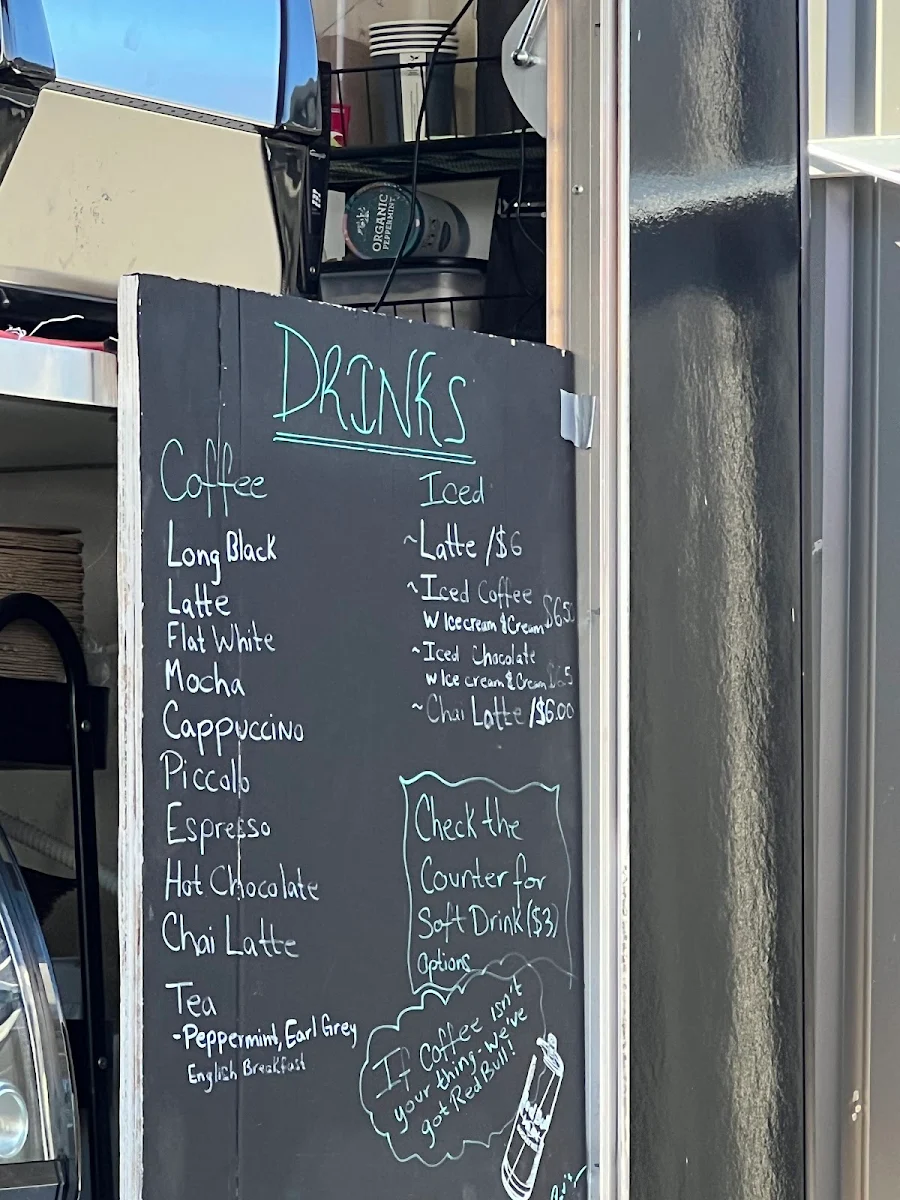 ORGANIC
PEPPERMINT
DRINKS
Coffee
Long Black
Latte
Flat White
Mocha
Cappuccino
Piccolo
Espresso
Hot Chocolate
Chai Latte
Tea
-Peppermint, Earl Grey
English Breakfast
Iced
~Latte /$6
~Iced Coffee
W Icecream & Cream $6.5
~Iced Chocolate
w Ice cream & Cream $6.5
~Chai Latte /$6.00
Check the
Counter for
Soft Drink ($3)
Options
If Coffee isn't
your thing-we've
got Red Bull!